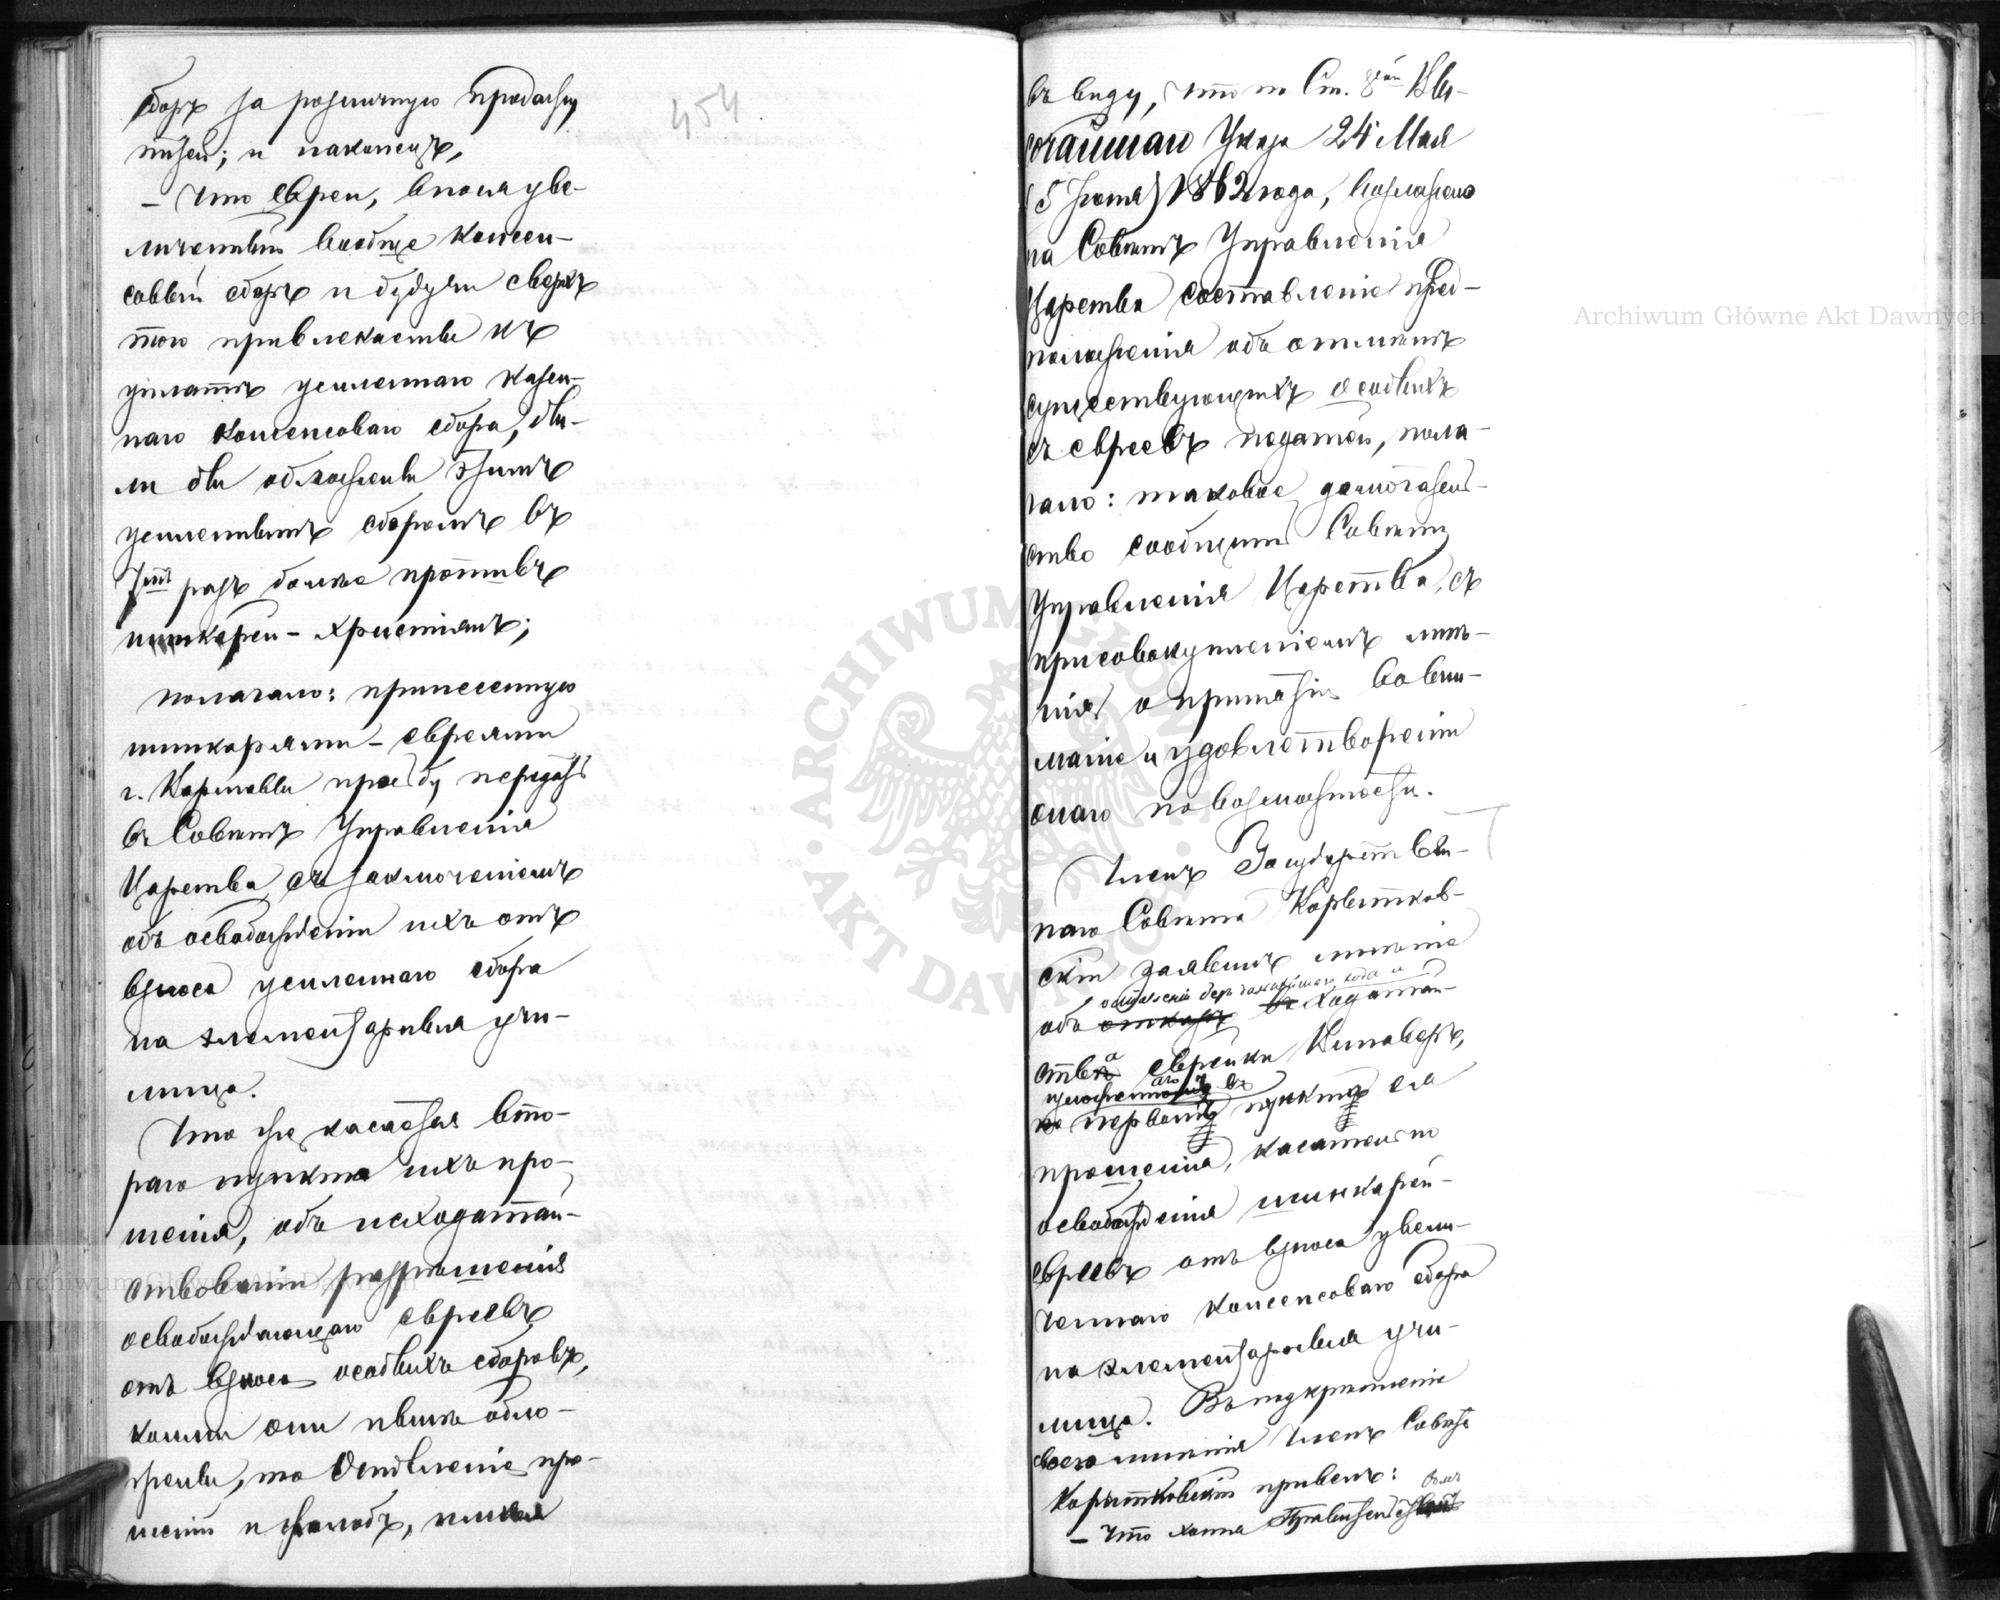 454
сборъ за розничную продажу
питей; и наконецъ,
— что евреи, вполнѣ уве-
личенный вообще консен-
совый сборъ и будучи сверхъ
того привлекаемы къ
уплатѣ усиленнаго казен-
наго консенсоваго сбора, бы-
ли бы обложены этимъ
усиленнымъ сборомъ въ
раза болѣе противъ
шинкарей-христіанъ;
полагало: принесенную
шинкарями-евреями
г. Варшавы просьбу передать
въ Совѣтъ Управленія
Царства съ заключеніемъ
объ освобожденіи ихъ отъ
взноса усиленнаго сбора
на элементарныя учи-
лища.
Что же касается вто-
раго пункта ихъ про-
шенія, объ исходатай-
ствованіи разрѣшенія
освобождающаго евреевъ
отъ взноса особыхъ сборовъ,
коими они нынѣ обло-
жены, то Отдѣленіе про-
шеній и жалобъ, имѣя
въ виду, что по Ст. 8ой Вы-
сочайшаго Указа 24 Мая
(5 Іюня) 1862 года, возложено
на Совѣтъ Управленія
Царства составленіе пред-
положенія объ отмѣнѣ
существующихъ особыхъ
съ евреевъ податей, пола-
гало: таковое домогатель-
ство сообщить Совѣту
Управленія Царства, съ
присовокупленіемъ мнѣ-
нія о принятіи во вни-
маніе и удовлетвореніи
онаго по возможности.
Членъ Государствен-
наго Совѣта Корытков-
скій заявилъ мнѣніе
объ оставленіи безъ дальнѣйшаго хода и
отказѣ въ ходатай-
ства еврейки Винаверъ,
изложеннаго въ
по первому пункту ея
прошенія, касательно
освобожденія шинкарей-
евреевъ отъ взноса увели-
ченнаго консенсоваго сбора
на элементарныя учи-
лища. Въ подкрѣпленіе
своего мнѣнія Членъ Совѣта
Корытковскій привелъ:
— что хотя Правительствомъ
Archiwum Główne Akt Dawnych
Archiwum Główne Akt Dawnych
ARCHIWUM GŁÓWNE · AKT DAWNYCH ·